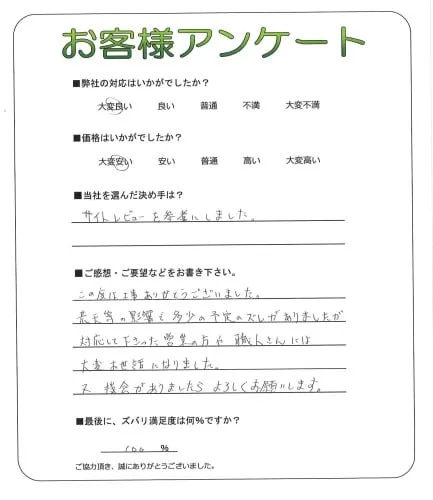 お客様アンケート
■弊社の対応はいかがでしたか？
大変良い 良い 普通 不満 大変不満
■価格はいかがでしたか？
大変安い 安い 普通 高い 大変高い
■当社を選んだ決め手は？
サイトレビューを参考にしました。
■ご感想・ご要望などをお書き下さい。
この度は工事ありがとうございました。
荒天等の影響で多少の予定のズレがありましたが
対応して下さった営業の方や職人さんには
大変お世話になりました。
又機会がありましたらよろしくお願いします。
■最後に、ズバリ満足度は何％ですか？
100 %
ご協力頂き、誠にありがとうございました。